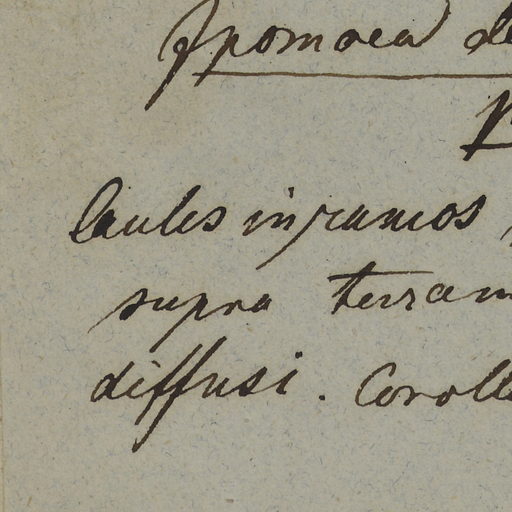 Ipomoea de
Caules in ramos
supra terram
diffusi. Coroll